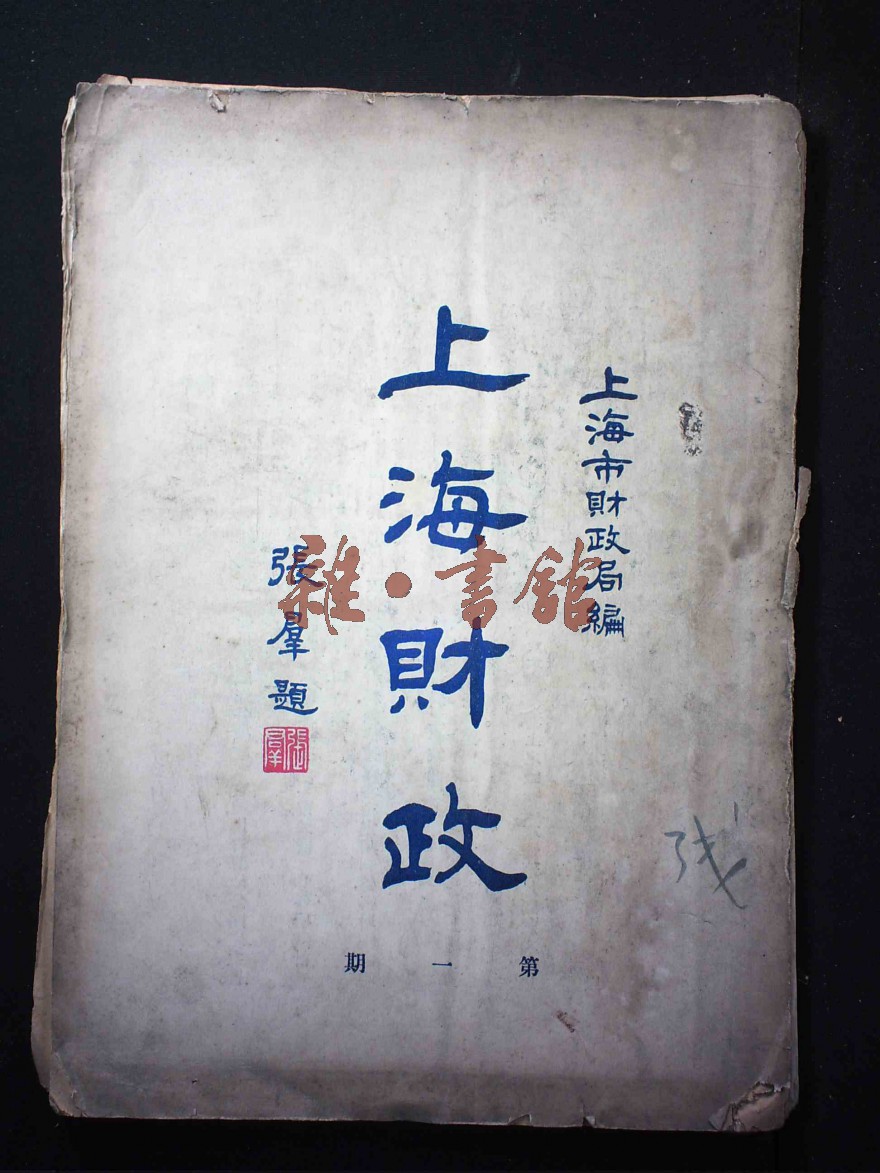 上海市財政局編
上海財政
張羣題
張羣
第一期
殘
雜·書館